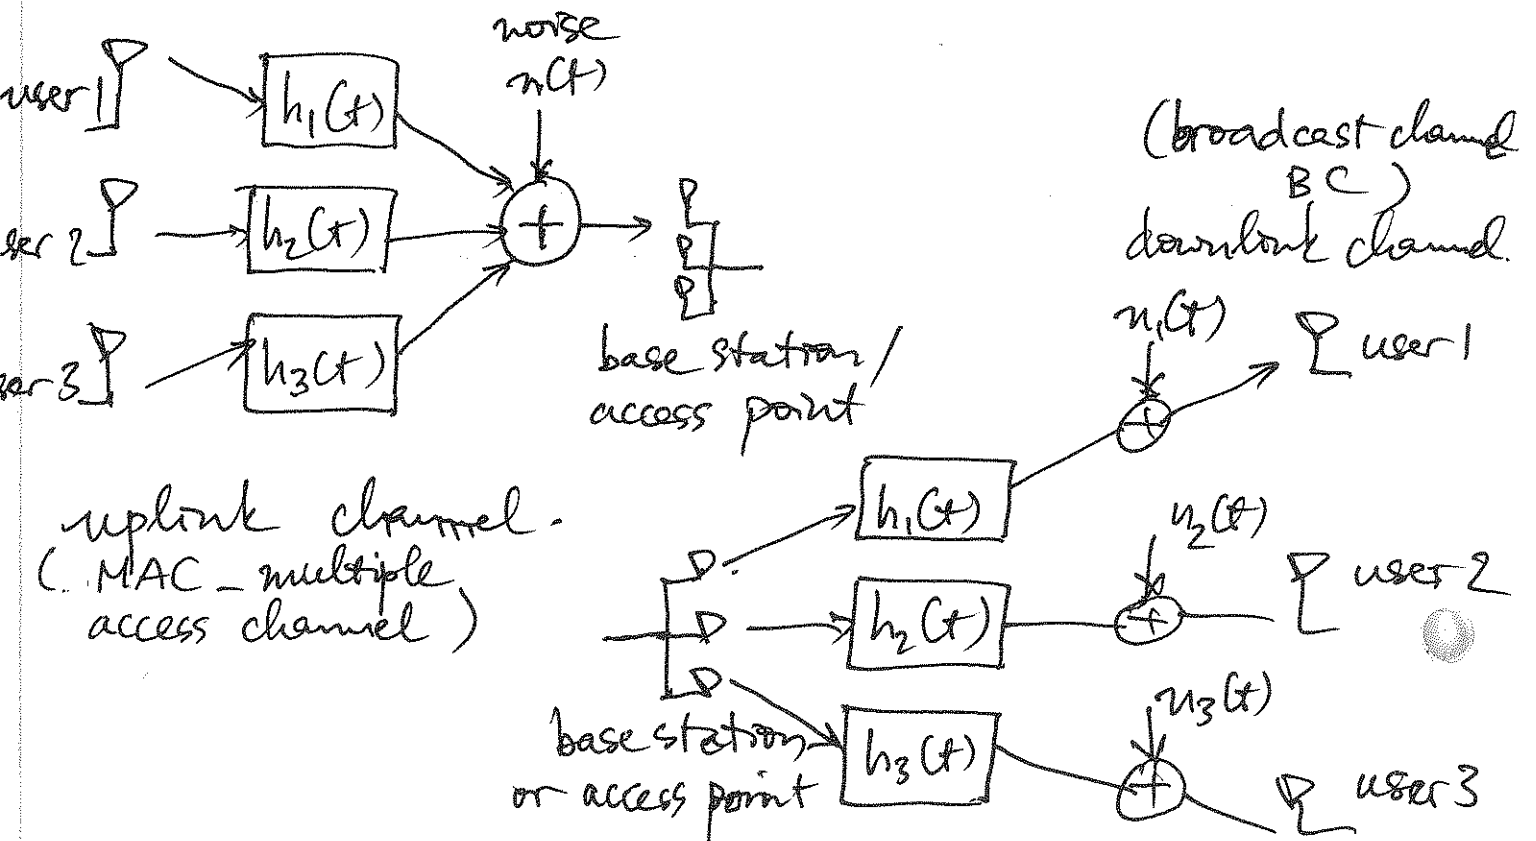 noise
n(t)
user 1
h₁(t)
user 2
h₂(t)
user 3
h₃(t)
base station /
access point
uplink channel.
(. MAC - multiple
access channel )
(broadcast channel
BC )
downlink channel.
n₁(t)
user 1
h₁(t)
n₂(t)
user 2
h₂(t)
n₃(t)
user 3
h₃(t)
base station
or access point